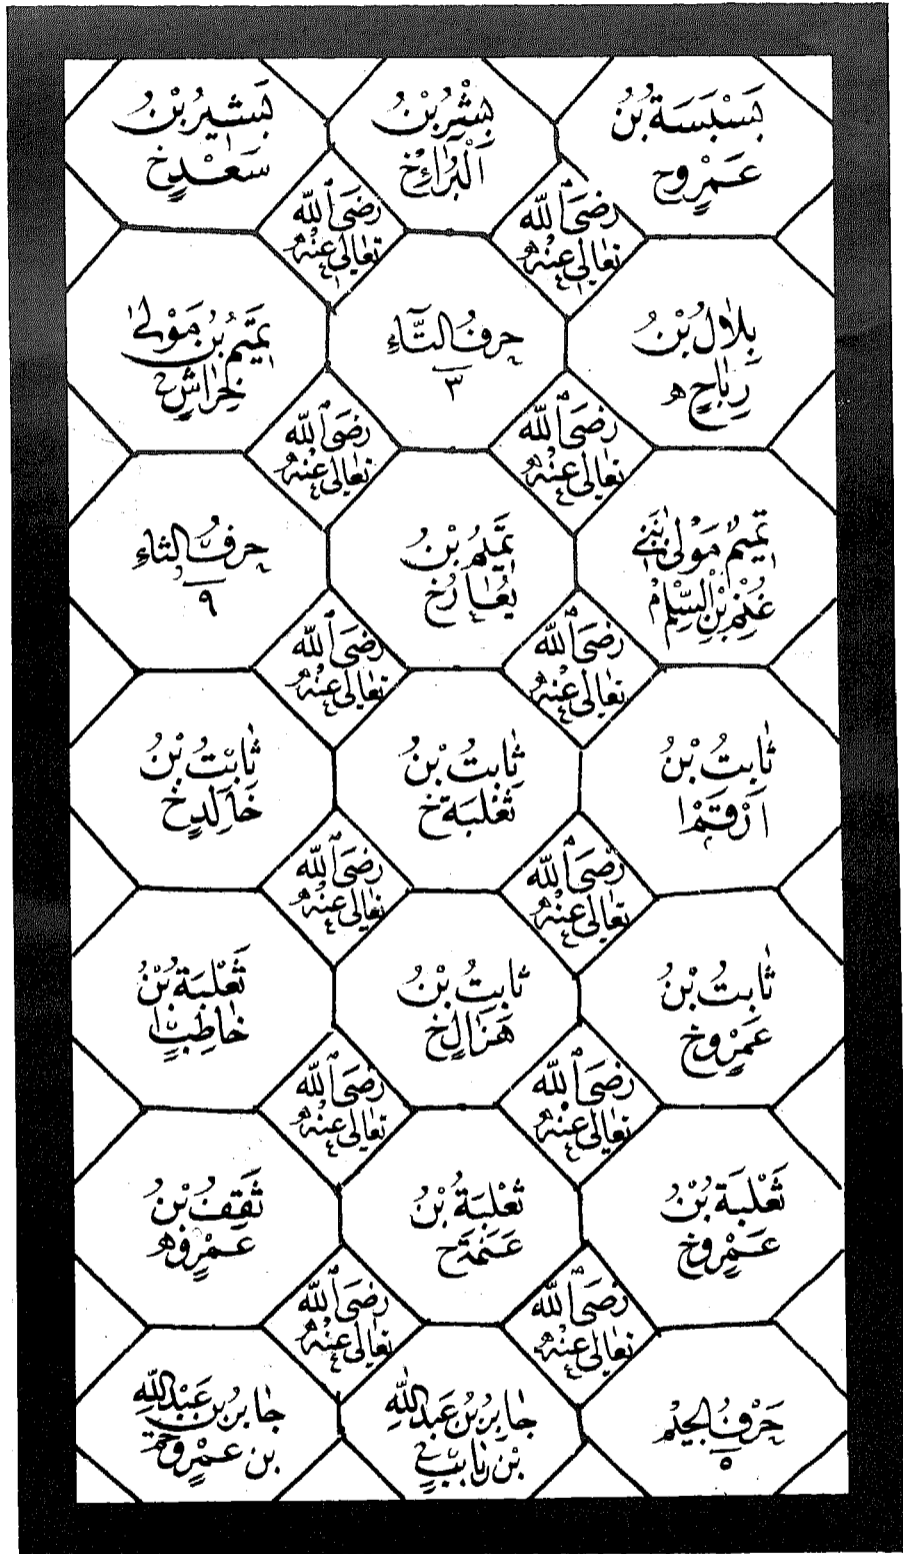 بَسْبَسَةُ بْنُ
عَمْرٍو ح
بِشْرُ بْنُ
الْبَرَاءِ خ
بَشِيرُ بْنُ
سَعْدٍ خ
رَضِىَ ٱللّٰه
تعالى عنه
رَضِىَ ٱللّٰه
تعالى عنه
بِلَالُ بْنُ
رِبَاحٍ ه
حرفُ التَّاءِ
٣
تَمِيمُ بْنُ مَوْلىٰ
خِرَاشٍ خ
رَضِىَ ٱللّٰه
تعالى عنه
رَضِىَ ٱللّٰه
تعالى عنه
تَمِيمٌ مَوْلىٰ بَنِي
غُنْمِ بْنِ السِّلْم
تَمِيمُ بْنُ
يُعَارَ خ
حرفُ الثاءِ
٩
رَضِىَ ٱللّٰه
تعالى عنه
رَضِىَ ٱللّٰه
تعالى عنه
ثَابِتُ بْنُ
اَرْقَمْ ا
ثَابِتُ بْنُ
ثَعْلَبَةَ خ
ثَابِتُ بْنُ
خَالِدٍ خ
رَضِىَ ٱللّٰه
تعالى عنه
رَضِىَ ٱللّٰه
تعالى عنه
ثَابِتُ بْنُ
عَمْرٍو خ
ثابِتُ بْنُ
هَزَالٍ خ
ثَعْلَبَةُ بْنُ
حَاطِبٍ ا
رَضِىَ ٱللّٰه
تعالى عنه
رَضِىَ ٱللّٰه
تعالى عنه
ثَعْلَبَةُ بْنُ
عَمْرٍو خ
ثَعْلَبَةُ بْنُ
عَنَمَةَ ح
ثَقِفُ بْنُ
عَمْرٍو ه
رَضِىَ ٱللّٰه
تعالى عنه
رَضِىَ ٱللّٰه
تعالى عنه
حَرْفُ الْجِيْم
٥
جَابِرُ بْنُ عَبْدِاللّٰهِ
بْنِ
جَابِرُ بْنُ عَبْدِاللّٰهِ
بن عَمْرٍو